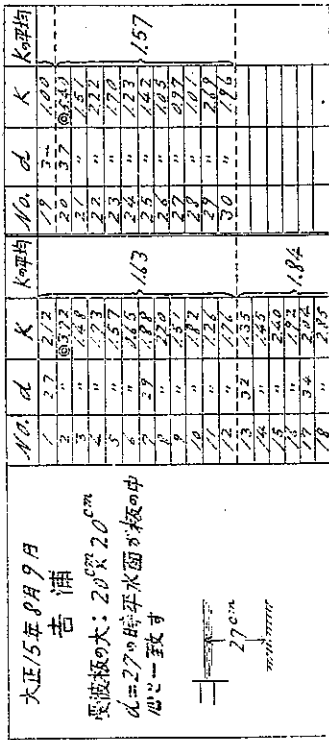 大正15年8月9日
吉浦
受波板の大: 20cm×20cm
d=27の時平水面が板の中
心と一致す
27cm
No. d K Kの平均
1 27 2.12
2 〃 ◎3.72
3 〃 1.48
4 〃 1.73
5 〃 1.57
6 〃
7 29 1.88
8 〃 2.20
9 〃 1.51
10 〃 1.82
11 〃 1.26
12 〃 1.76
1.63
13 32 1.35
14 〃 1.45
15 〃 2.40
〃 1.92
17 34 2.04
18 2.85
1.84
No. d K Kの平均
19 1.00
20 37
21 〃 1.51
22 〃 2.22
23 〃 1.70
24 〃 1.23
25 〃 1.42
26 〃 1.05
27 〃 0.97
28 〃 1.01
29 〃 2.69
30 〃 1.96
1.57